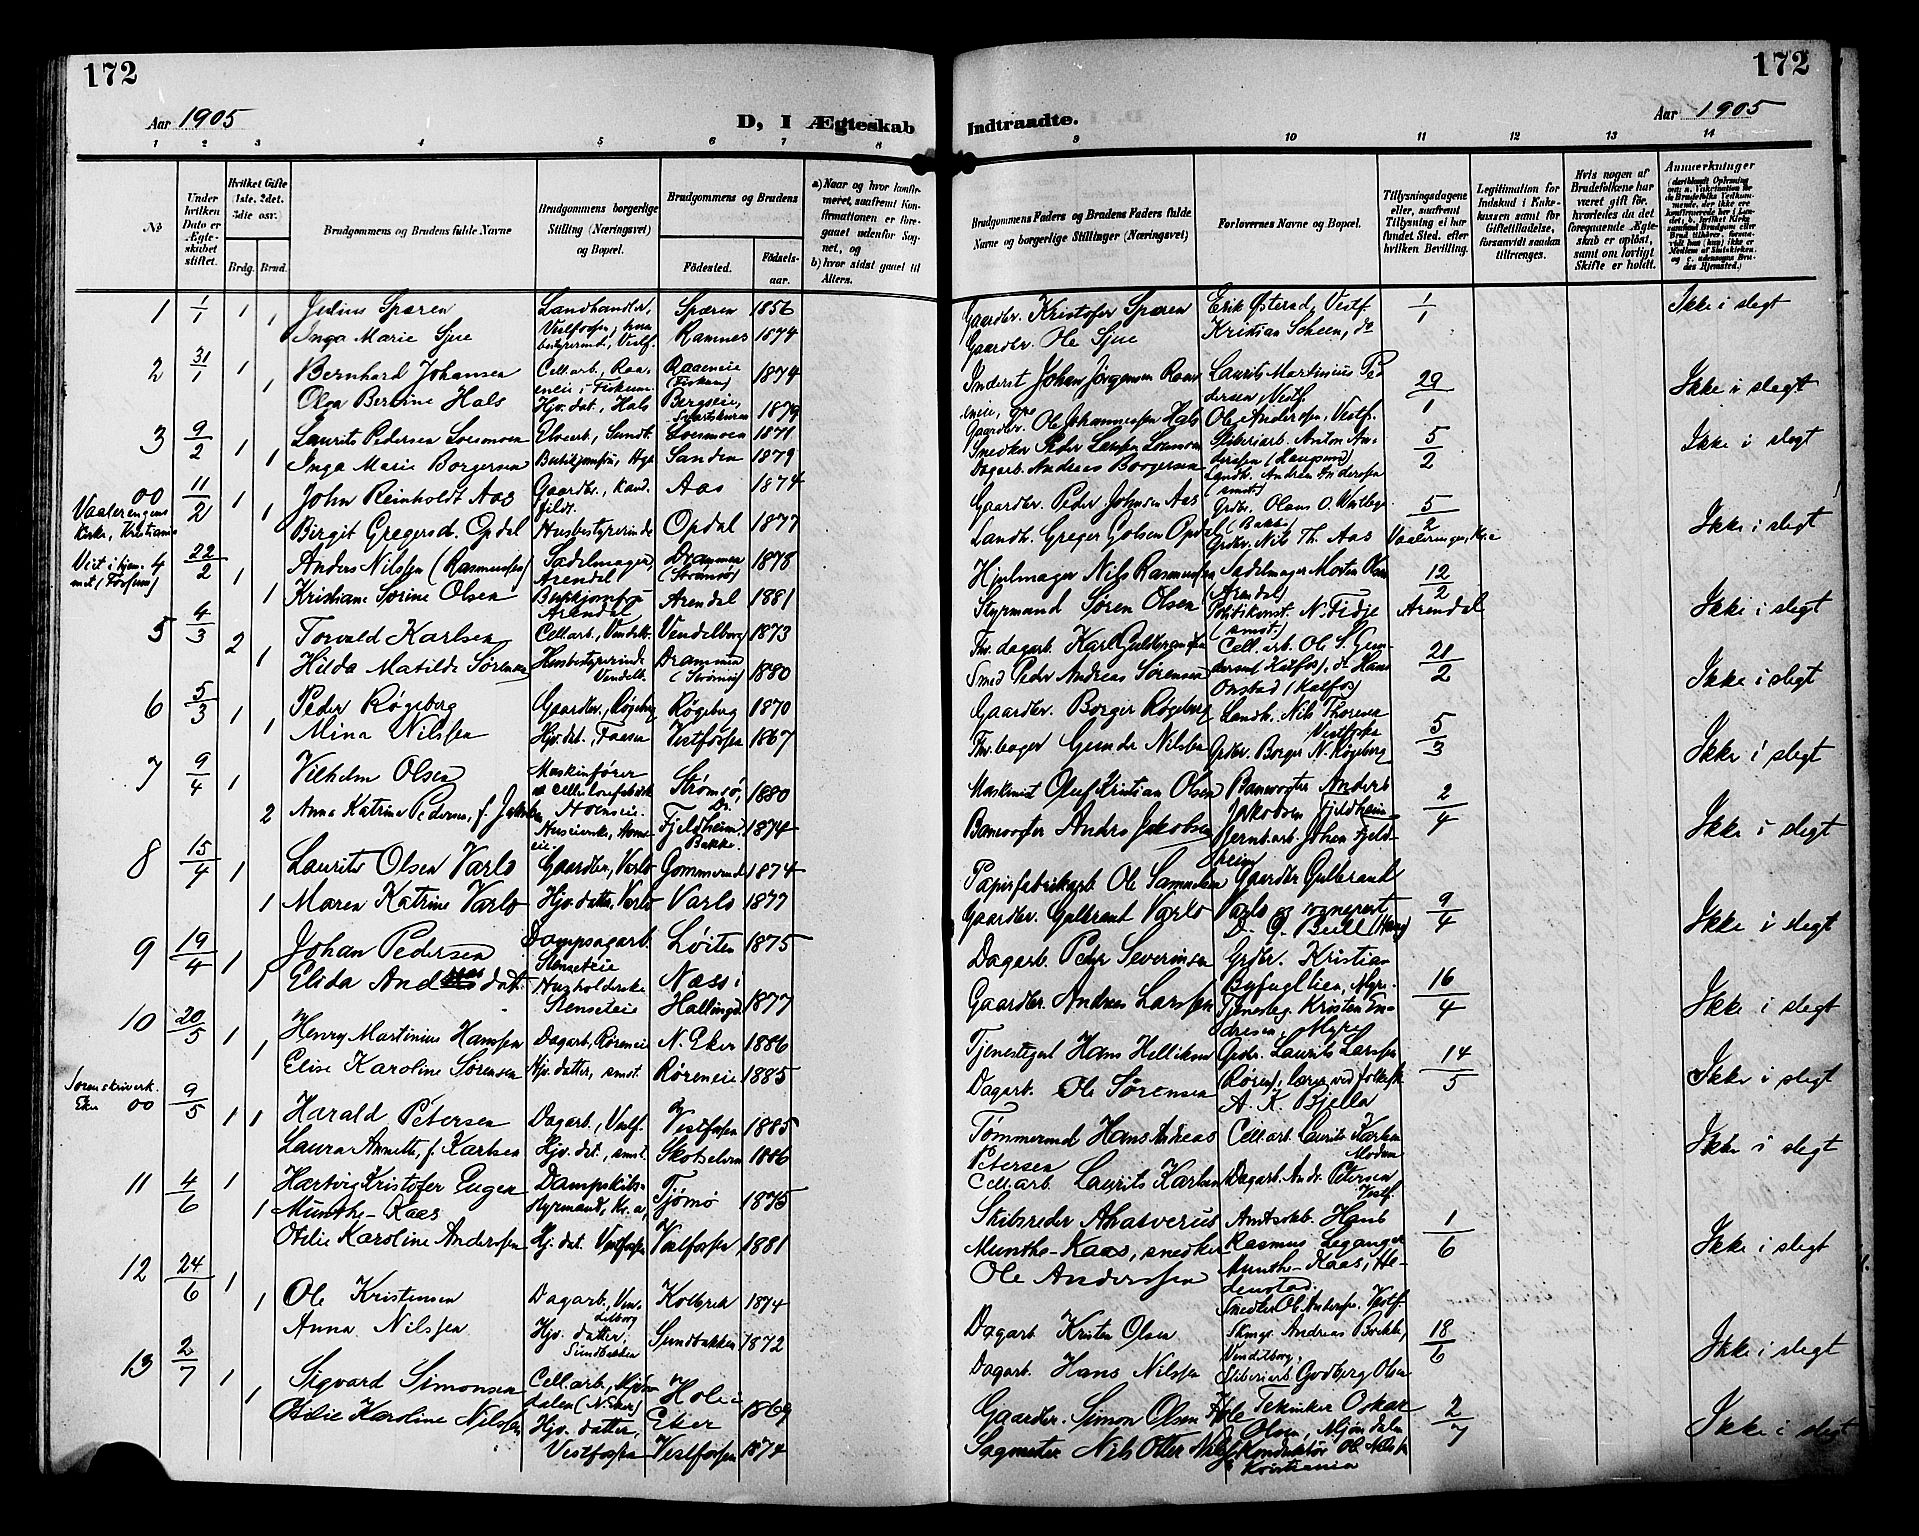 172
172
Aar 1905
D, I Ægteskab
Indtraadte.
Aar 1905
1 2 3 4 5 6 7 8
9 10 11 12 13 14
№
Under hvilken Dato er Ægteskabet stiftet.
Hvilket Gifte (1ste, 2det, 3die osv.)
Brdg. Brud.
Brudgommens og Brudens fulde Navne
Brudgommens borgerlige Stilling (Næringsvei) og Bopæl.
Brudgommens og Brudens
Fødested.
Fødselsaar.
a) Naar og hvor konfirmeret, saafremt Konfirmationen er foregaaet udenfor Sognet, og
b) hvor sidst gaaet til Alters.
Brudgommens Faders og Brudens Faders fulde Navne og borgerlige Stillinger (Næringsvei)
Forlovernes Navne og Bopæl.
Tillysningsdagene eller, saafremt Tillysning ei har fundet Sted, efter hvilken Bevilling.
Legitimation for Indskud i Enkekassen samt for Giftetilladelse, forsaavidt saadan tiltrænges.
Hvis nogen af Brudefolkene har været gift før, hvorledes da det foregaaende Ægteskab er opløst, samt om lovligt Skifte er holdt.
Anmærkninger
1 1/1 1 Julius Spæren Landhandler, Spæren 1856 Gaardbr. Kristofer Spæren Erik Østerud, Vestf. 1/1 Ikke i slegt
1 Inga Marie Sjue bestyrerinde, Vestf. Ramnes 1874 Gaardbr. Ole Sjue Kristian Scheen, do
2 31/1 1 Bernhard Johansen Cell.arb., Raaeneie i Fiskum Raaeneie (Fiskum) 1874 Inderst Johan Jørgensen Laurits Martinius Pedersen, Vestf. 29/1 Ikke i slegt
1 Olga Bertine Hals Hjv. dat., Hals Bergseie, 1879 Gaardbr. Ole Johannessen Hals Ole Anderssen, Vestf.
3 9/2 1 Laurits Pedersen Loesmoen Elvearb., Sandt. Loesmoen 1871 Snedker Peder Larssen Loesmoen Sliberiarb. Anton Anderssen (Haugsund) 5/2 Ikke i slegt
1 Inga Marie Borgersen Butikjomfru, Sanden 1879 Dagarb. Andreas Borgersen Landh. Andreas Anderssen (smst.)
Vaalerengens Kirke, Kristiania
00 11/2 1 John Reinholdt Aas Gaardbr., Aas 1874 Gaardbr. Peder Johnsen Aas Grdbr. Olaus O. (Bakke) 5/2 Ikke i slegt
1 Birgit Gregersd. Opdal Husbestyrerinde Opdal 1877 Landh. Greger Golsen Opdal Grdbr. Nils Th. Aas Vaaleringen, Kria
Viet i hjemmet (Fossum)
4 22/2 1 Anders Nilssen (Rasmussen) Sadelmager, Arendal Drammen (Strømsø) 1878 Hjulmager Nils Rasmussen Sadelmager Morten Olsen (Arendal) 12/2 Arendal Ikke i slegt
1 Kristiane Sørine Olsen Butikjomfru Arendal Arendal 1881 Styrmand Søren Olsen Politikonst. N. Fidje (smst.)
5 4/3 2 Torvald Karlsen Cell.arb., Vendelborg 1873 Fhv. dagarb. Karl Cell.arb. Ole S. Gundersen (Katfos), 21/2 Ikke i slegt
1 Hilda Matilde Sørensen Husbestyrerinde Vendelb. Drammen (Strømsø) 1880 Smed Peder Andreas Sørensen do Hans Onstad (Katfos)
6 5/3 1 Peder Røgeberg Gaardbr., Røgeberg Røgeberg 1870 Gaardbr. Borger Røgeberg Landh. Nils Thoresen Vestfossen 5/3 Ikke i slegt
1 Mina Nilssen Hjv. dat., Faasen Vestfossen 1867 Fhv. bager Gunde Nilssen Grdbr. Borger N. Røgeberg
7 9/4 1 Vilhelm Olsen Maskinfører ved Cellulosefabrik Hoenseie. Strømsø, Dr. 1880 Maskinist Oluf Kristian Olsen Banevogter Anders Jakobsen Fjeldheim 2/4 Ikke i slegt
2 Anna Katrine Pedersen, f. Jakobsen Fjeldheim, Bakke. 1874 Banevogter Anders Jakobsen Jernb.arb. Johan Fjeldheim
8 15/4 1 Laurits Olsen Varlo Gaardbr., Varlo Gommerud 1874 Papirfabrikarb. Ole Samuelsen Gaardbr. Gulbrand Varlo og sogneprest 9/4 Ikke i slegt
1 Maren Katrine Varlo Hjv. datter, Varlo Varlo 1877 Gaardbr. Gulbrant Varlo D. G. Bull (Haug)
9 19/4 1 Johan Pedersen Dampsagarb. Stenseteie Løiten 1875 Dagarb. Peter Severinsen Grdbr. Kristian Byfuglien, Myre 16/4 Ikke i slegt
1 Elida Andreasdat. Husholderske Stenseteie Næss i Hallingd. 1877 Gaardbr. Andreas Larssen Tjenesteg. Kristen Endresen, Myre
10 20/5 1 Henry Martinius Hanssen Dagarb., Røreneie N. Eker 1886 Tjenestegut Hans Helliksen Grdbr. Laurits Larssen Røren, 14/5 Ikke i slegt
1 Elise Karoline Sørensen Hjv. datter, smst. Røreneie 1885 Dagarb. Ole Sørensen lærer ved folkesk. A. K. Bjella
Sorenskriverk. Eker
00 9/5 1 1 Harald Petersen Dagarb., Vestf. Vestfossen 1885 Tømmermd. Hans Andreas Petersen Cell.arb. Laurits Karlsen Modum Ikke i slegt
Laura Annette, f. Karlsen Hjv. dat., smst. Skotselven 1886 Cell.arb. Laurits Karlsen Dagarb. Andr. Petersen Vestf.
11 4/6 1 Hartvig Kristofer Eugen Munthe-Kaas Dampskibsstyrmand, Kr.a, Tjømø 1875 Skibsreder Ahasverus Munthe-Kaas, Amtsskb. Hans Rasmus Leganger Munthe-Kaas, Hedenstad. 1/6 Ikke i slegt
1 Otilie Karoline Anderssen Hj. dat. Vestfossen Vestfossen 1881 snedker Ole Anderssen Snedker Ole Anderssen, Vestf.
12 24/6 1 Ole Kristensen Dagarb., Vendelborg Kolbrek 1874 Dagarb. Kristen Olsen Andreas Bakke, Vendelborg, 18/6 Ikke i slegt
1 Anna Nilssen Hjv. datter, Sundbakken Sundbakken 1872 Dagarb. Hans Nilssen Sliberiarb. Godberg Olsen
13 2/7 1 Sigvard Simonsen Cell.arb., Mjøndalen (N. Eker) Hole i Eker 1869 Gaardbr. Simon Olsen Hole Tekniker Oskar Olsen, Mjøndalen 2/7 Ikke i slegt
1 Otilie Karoline Nilssen Hjv. datter, Vestfossen Vestfossen 1874 Sagmester Nils Otter Nilssen Konduktør Ole Nilssen Kristiania